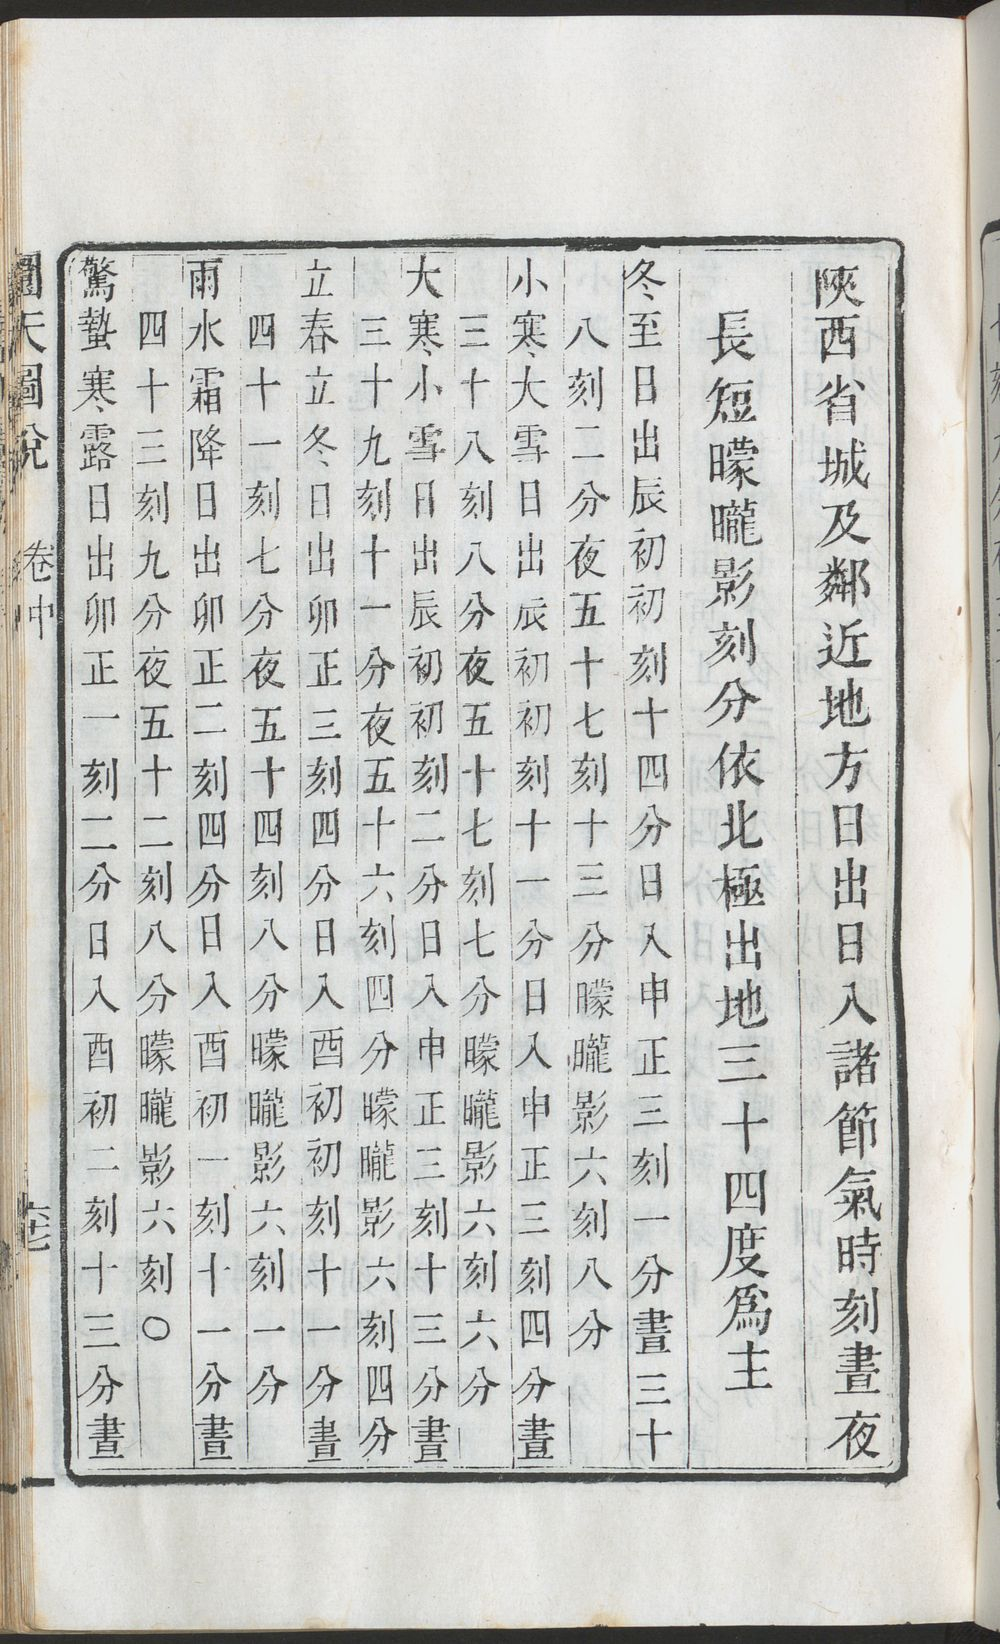 陝西省城及鄰近地方日出日入諸節氣時刻晝夜
長短曚曨影刻分依北極出地三十四度爲主
冬至日出辰初初刻十四分日入申正三刻一分晝三十
八刻二分夜五十七刻十三分曚曨影六刻八分
小寒大雪日出辰初初刻十一分日入申正三刻四分晝
三十八刻八分夜五十七刻七分曚曨影六刻六分
大寒小雪日出辰初初刻二分日入申正三刻十三分晝
三十九刻十一分夜五十六刻四分曚曨影六刻四分
立春立冬日出卯正三刻四分日入酉初初刻十一分晝
四十一刻七分夜五十四刻八分曚曨影六刻一分
雨水霜降日出卯正二刻四分日入酉初一刻十一分晝
四十三刻九分夜五十二刻八分曚曨影六刻〇
驚蟄寒露日出卯正一刻二分日入酉初二刻十三分晝
天圖說
卷中